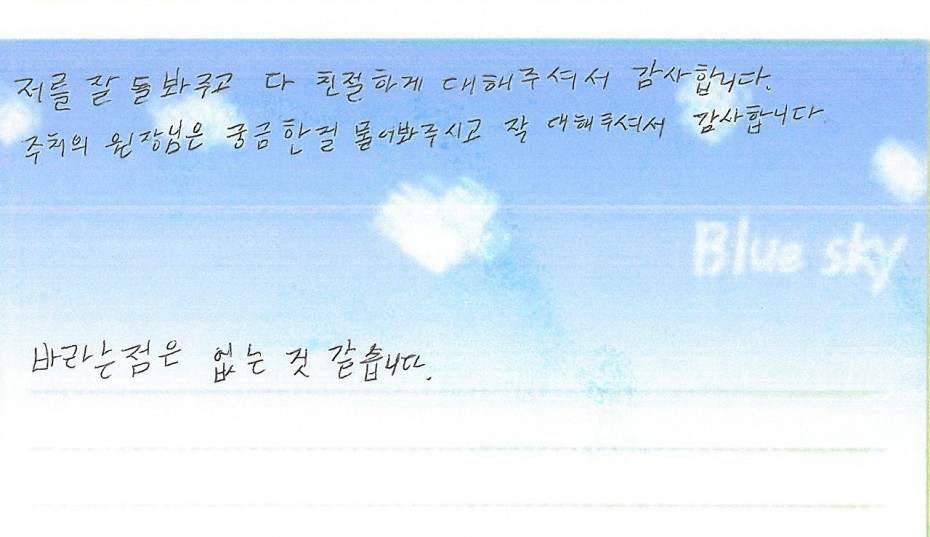 저를 잘 돌봐주고 다 친절하게 대해주셔서 감사합니다.
주치의 원장님은 궁금한걸 물어봐주시고 잘 대해주셔서 감사합니다
Blue sky
바라는점은 없는 것 같습니다.